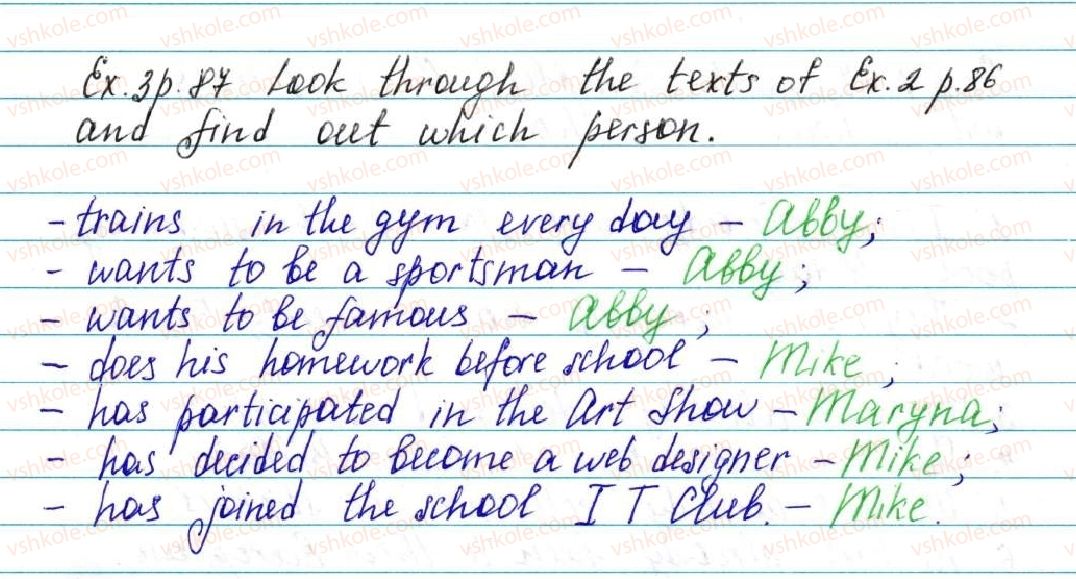 Ex. 3 p. 87 Look through the texts of Ex. 2 p. 86
and find out which person.
- trains in the gym every day - Abby;
- wants to be a sportsman - Abby;
- wants to be famous - Abby;
- does his homework before school - Mike;
- has participated in the Art Show - Maryna;
- has decided to become a web designer - Mike;
- has joined the school IT Club. - Mike.